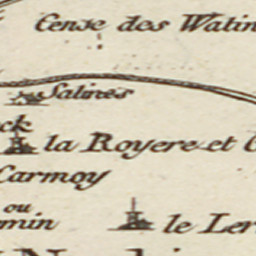 Cense des Watin
Salines
ck
la Royere et
Carmoy
ou
min
le Ler